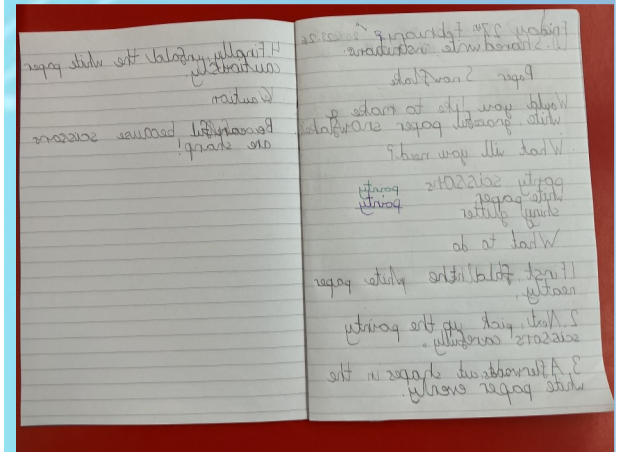 Friday 2nd February
Shared write instructions.
Paper Snowflake
Would you like to make a
white, graceful paper snowflake?
What will you need?
pointy scissors pointy
white paper pointy
shiny glitter
What to do
1 First, fold the white paper
neatly.
2. Next, pick up the pointy
scissors carefully.
3. Afterwards, cut shapes in the
white paper evenly.
4 Finally, unfold the white paper
cautiously.
Caution
Be careful because scissors
are sharp!